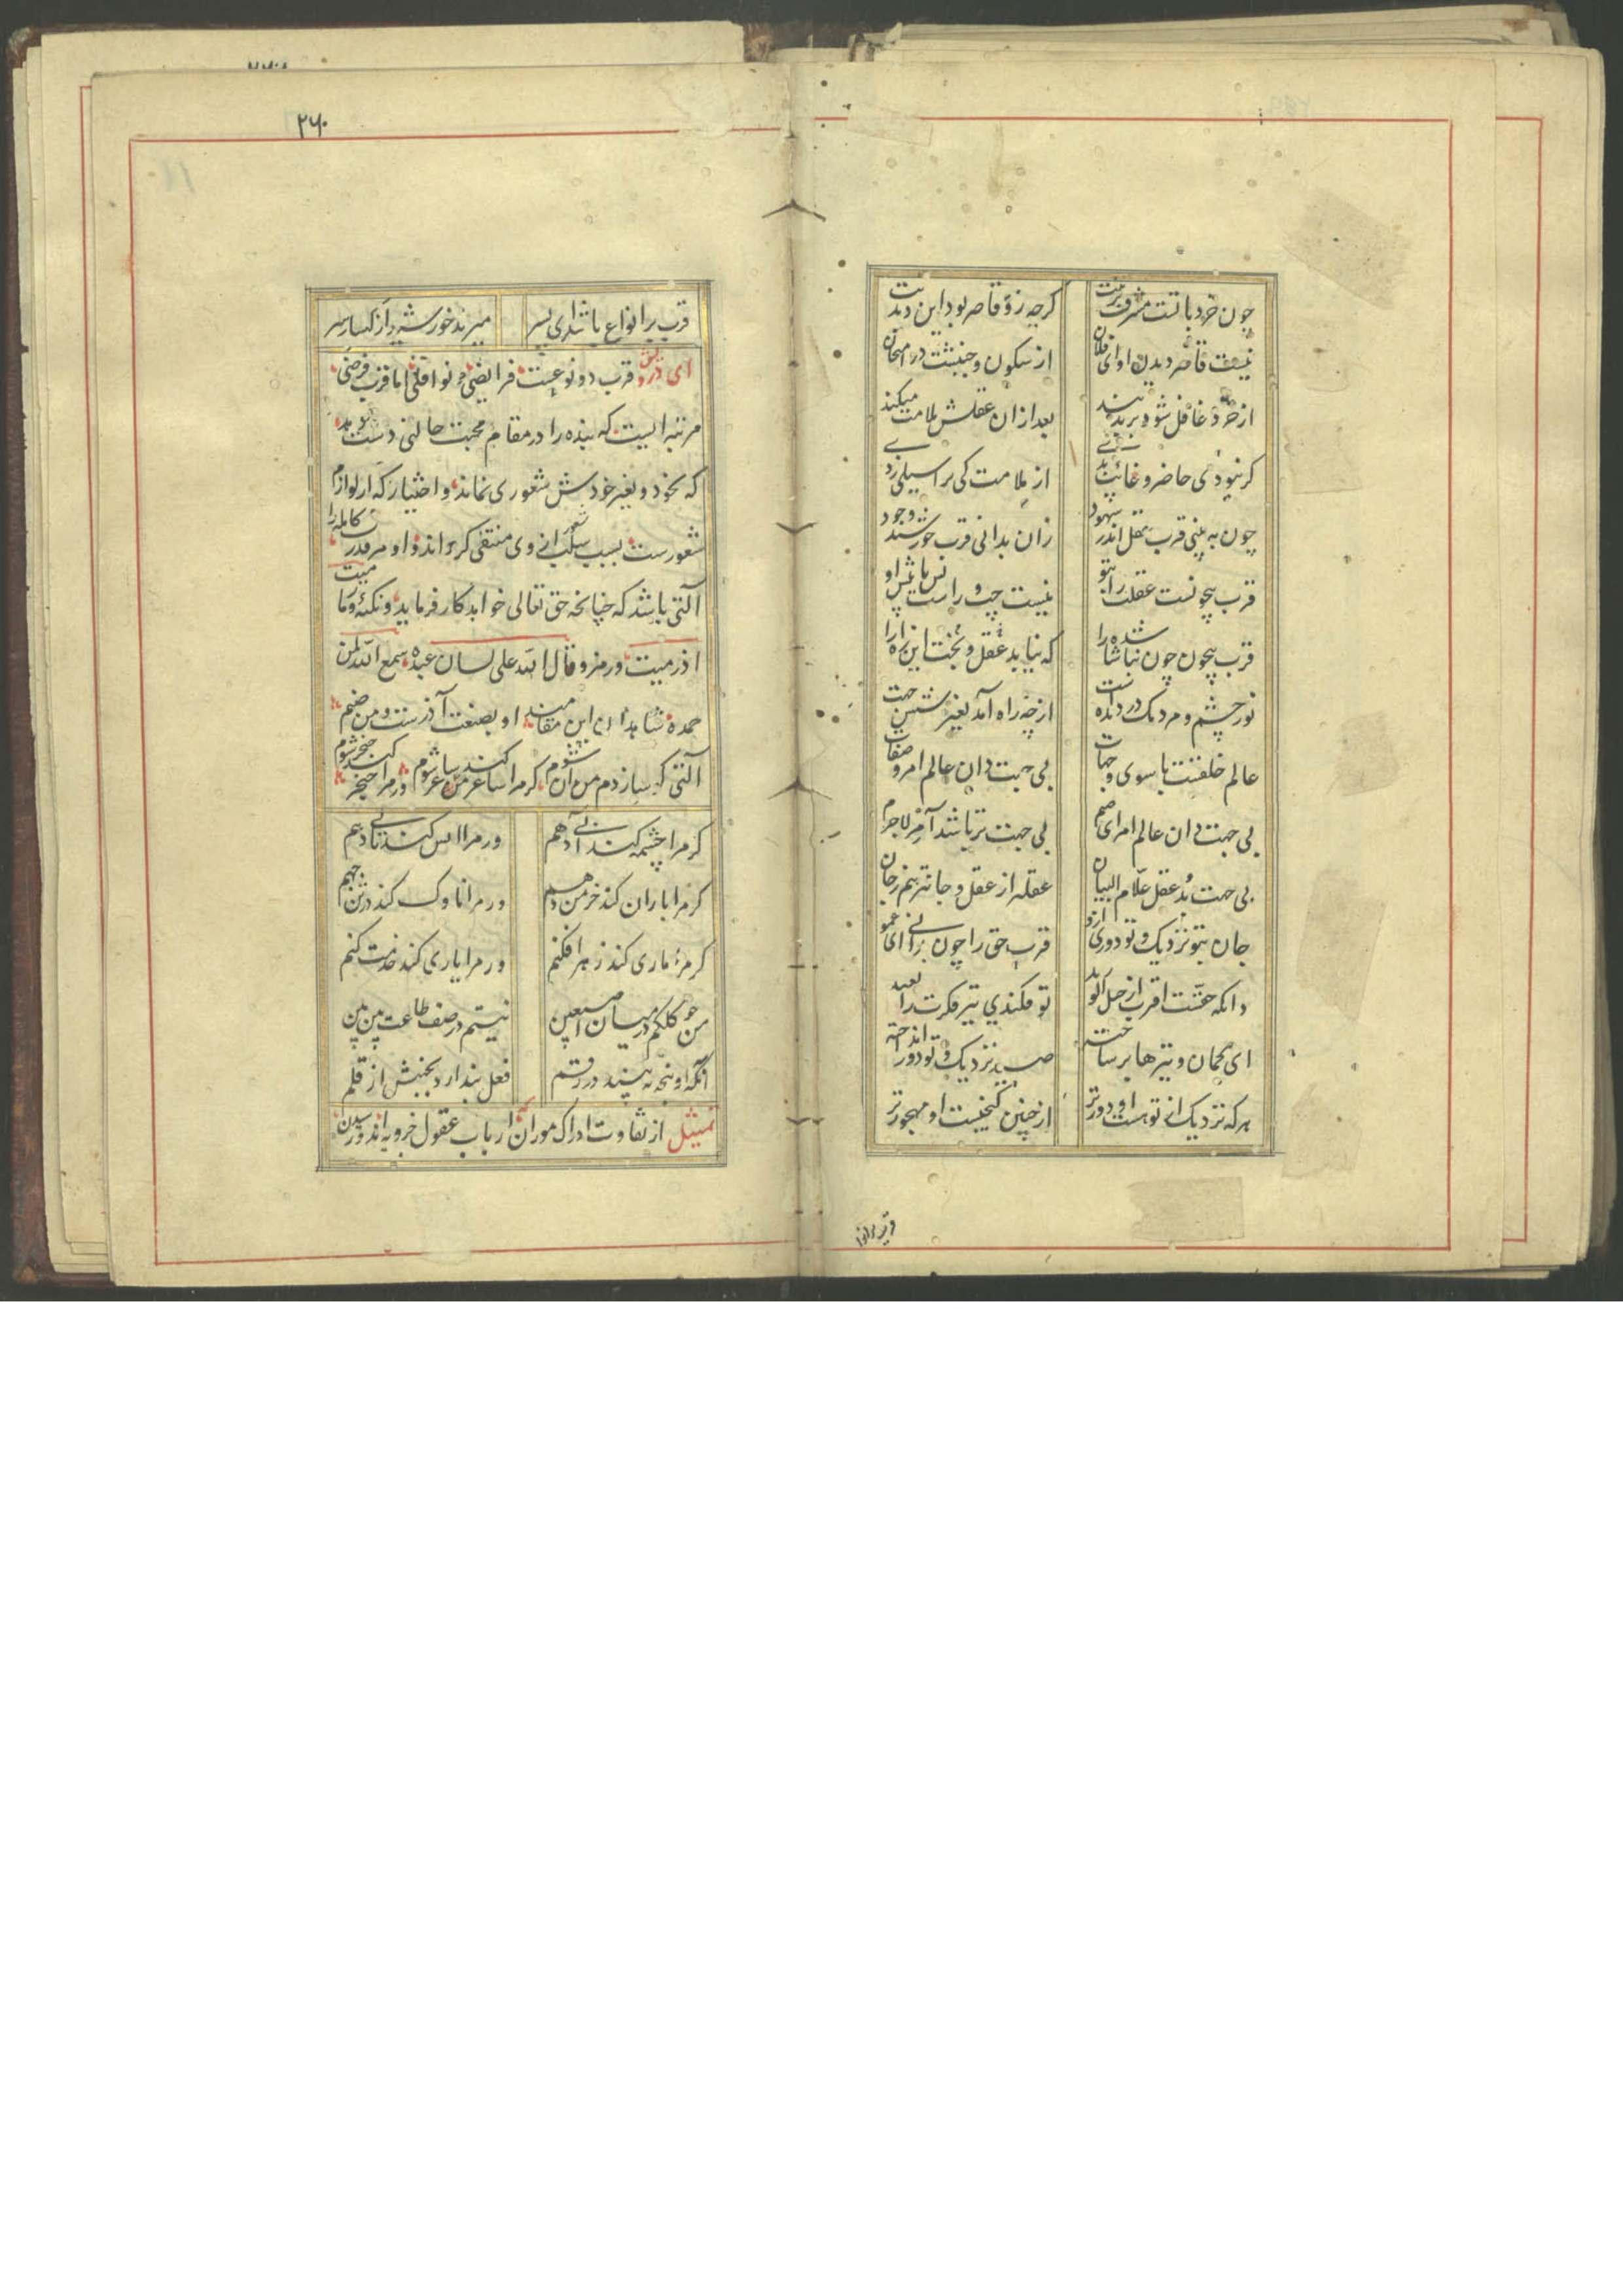 چون خرد با تست مشرف بر تنت
گرچه زو قاصر بود این دیدنت
نیست قاصر دیدن او ای فلان
از سکون و جنبشت در امتحان
از خرد غافل شود بر بد تند
بعد از آن عقلش ملامت میکند
گر نبودی حاضر و غائب بدی
از ملامت کی ترا سیلی زدی
چون به بینی قرب عقل اندر شهود
زان بدانی قرب خورشید وجود
قرب بیچونست عقلت را بتو
نیست چپ و راست پس یا پیش او
قرب بیچون چون نباشد شاه را
که نیابد عقل و بخت این راه را
نور چشم و مردمک در دیده است
از چه راه آمد بغیر شش جهت
عالم خلقست با سوی و جهات
بی جهت دان عالم امر و صفات
بی جهت دان عالم امر ای صنم
بی جهت تر باشد آمر لاجرم
بی جهت بد عقل علام البیان
عقلتر از عقل و جانتر هم ز جان
جان بتو نزدیک و تو دوری ازو
قرب حق را چون بدانی ای عمو
وانکه حقست اقرب از حبل الورید
تو فکندی تیر فکرت را بعید
ای کمان و تیرها بر ساخته
صید نزدیک و تو دور انداخته
هرکه نزدیک از تو هست او دورتر
از چنین گنجیست او مهجورتر
۲۶۰
قرب بر انواع باشد ای پسر
میزند خورشید از کهسار سر
ای درویش قرب دو نوعست فرایضی و نوافلی اما قرب فرضی
مرتبه ایست که بنده را در مقام محبت حالتی دست دهد
که بخود و بغیر خودش شعوری نماند و اختیار که از لوازم
شعورست بسبب سلب شعور از وی منتفی گردد اندو او مر قدرت کامله را
آلتی باشد که چنانچه حق تعالی خواهد کار فرماید و نکتهٔ وما رمیت
اذ رمیت و رمز و قال الله علی لسان عبده سمع الله لمن
حمده شاهدان این مقامند او بصنعت آذرست و من صنم
آلتی که سازدم من آن شوم گر مرا ساغر کند ساغر شوم ور مرا خنجر کند خنجر شوم
گر مرا چشمه کند آبی دهم
ور مرا آتش کند تابی دهم
گر مرا باران کند خرمن دهم
ور مرا ناوک کند در تن جهم
گر مرا ماری کند زهر افکنم
ور مرا یاری کند خدمت کنم
من چو کلکم در میان اصبعین
نیستم در صف طاعت بین بین
آنکه او پنجه نه بیند در رقم
فعل پندارد بجنبش از قلم
تمثیل از تفاوت ادراک موران ارباب عقول جزویه اند در سیدن